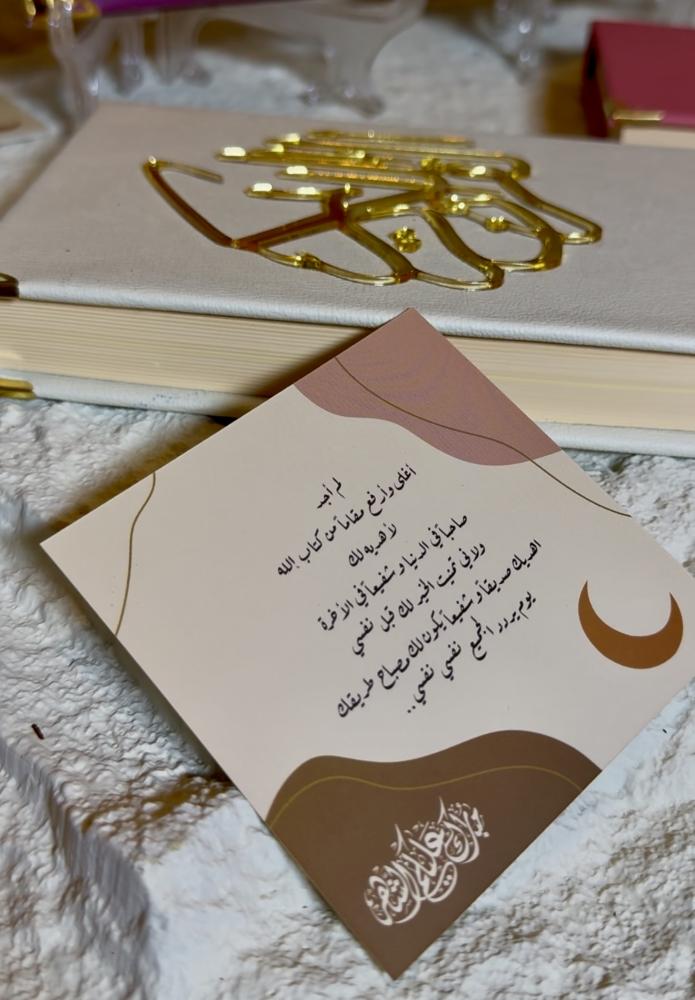 القرآن الكريم
لم أجد
أغلى وأرفع مقاماً من كتاب الله
لأهديه لك
صاحباً في الدنيا وشفيعاً في الآخرة
ولأني تمنيت الخير لك قبل نفسي
اهديك صديقاً وشفيعاً يكون لك مصباح طريقك
يوم يردد الجميع نفسي نفسي..
مبارك عليكم الشهر